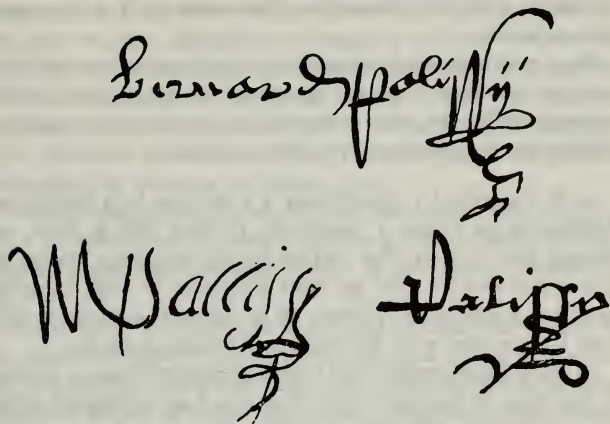 Bernard palissy
MPallissy Palissy